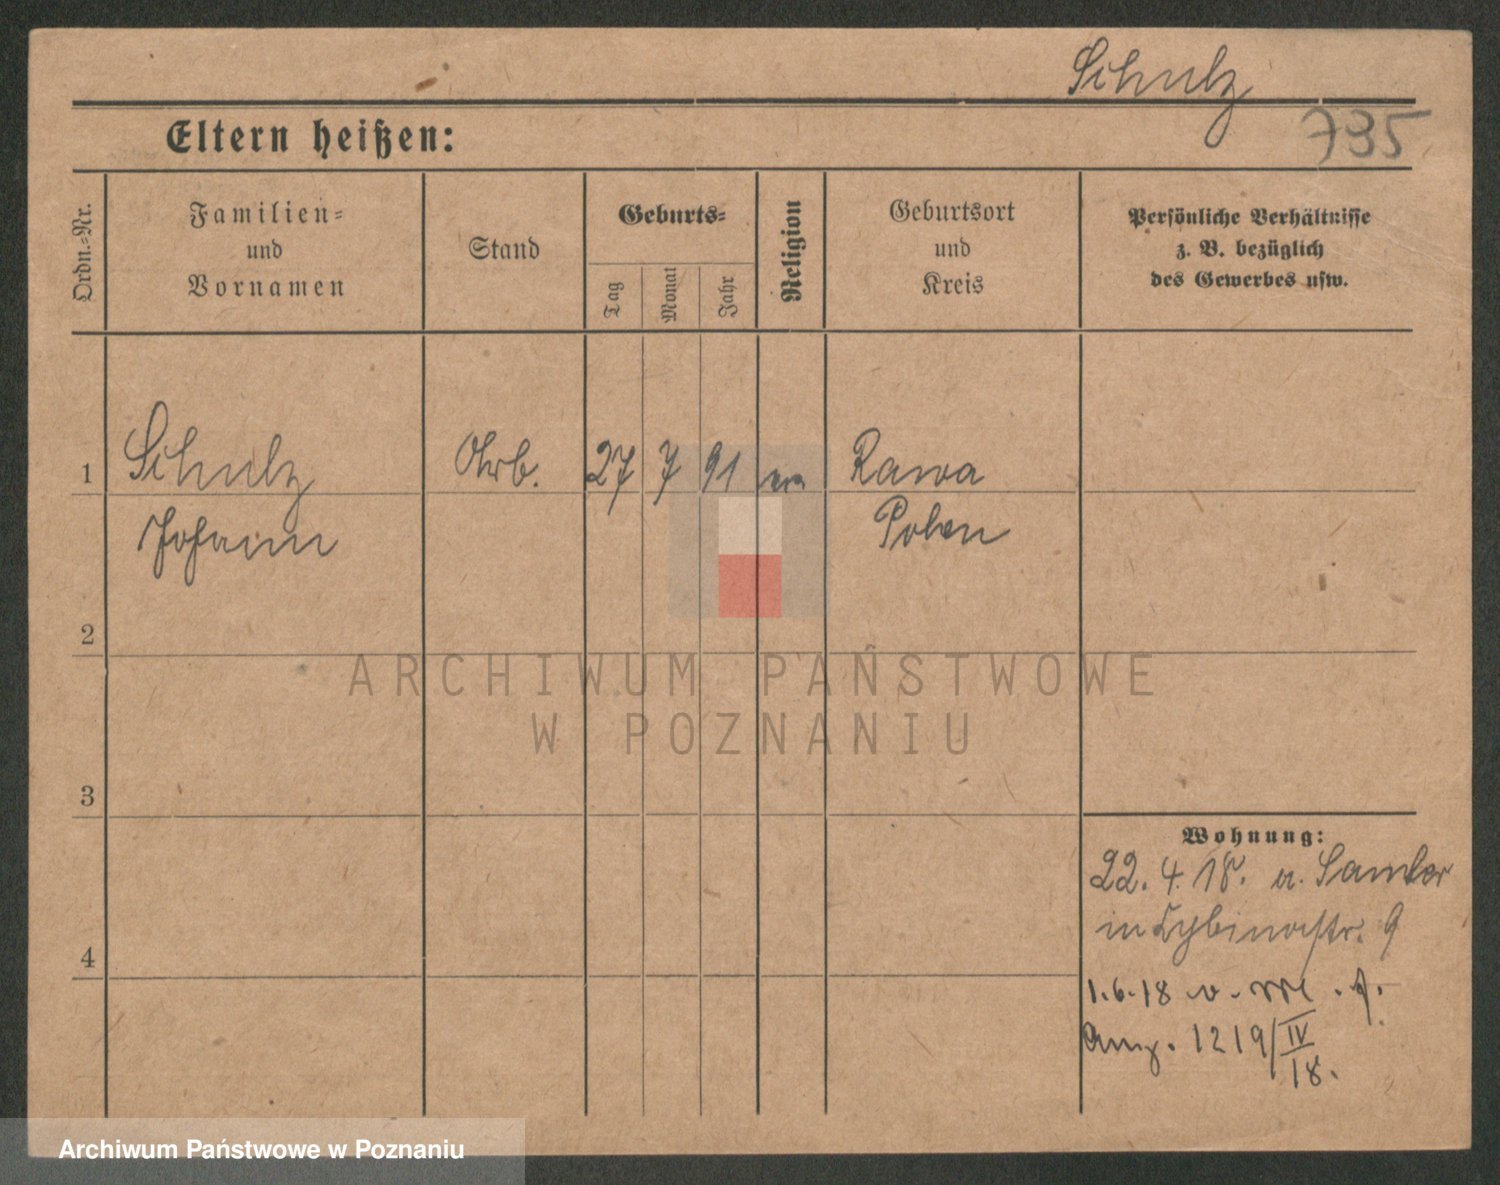 Schulz
735
Eltern heißen:
Ordn.-Nr.
Familien-
und
Vornamen
Stand
Geburts-
Tag
Monat
Jahr
Religion
Geburtsort
und
Kreis
Persönliche Verhältnisse
z. B. bezüglich
des Gewerbes usw.
1
Schulz
Arb.
27
7
91
Rawa
Johann
Polen
2
3
4
Wohnung:
22. 4. 18. a. Samter
in Cybinastr. 9
1.6.18 v.
Anz. 1219/IV
18.
ARCHIWUM PAŃSTWOWE
W POZNANIU
Archiwum Państwowe w Poznaniu